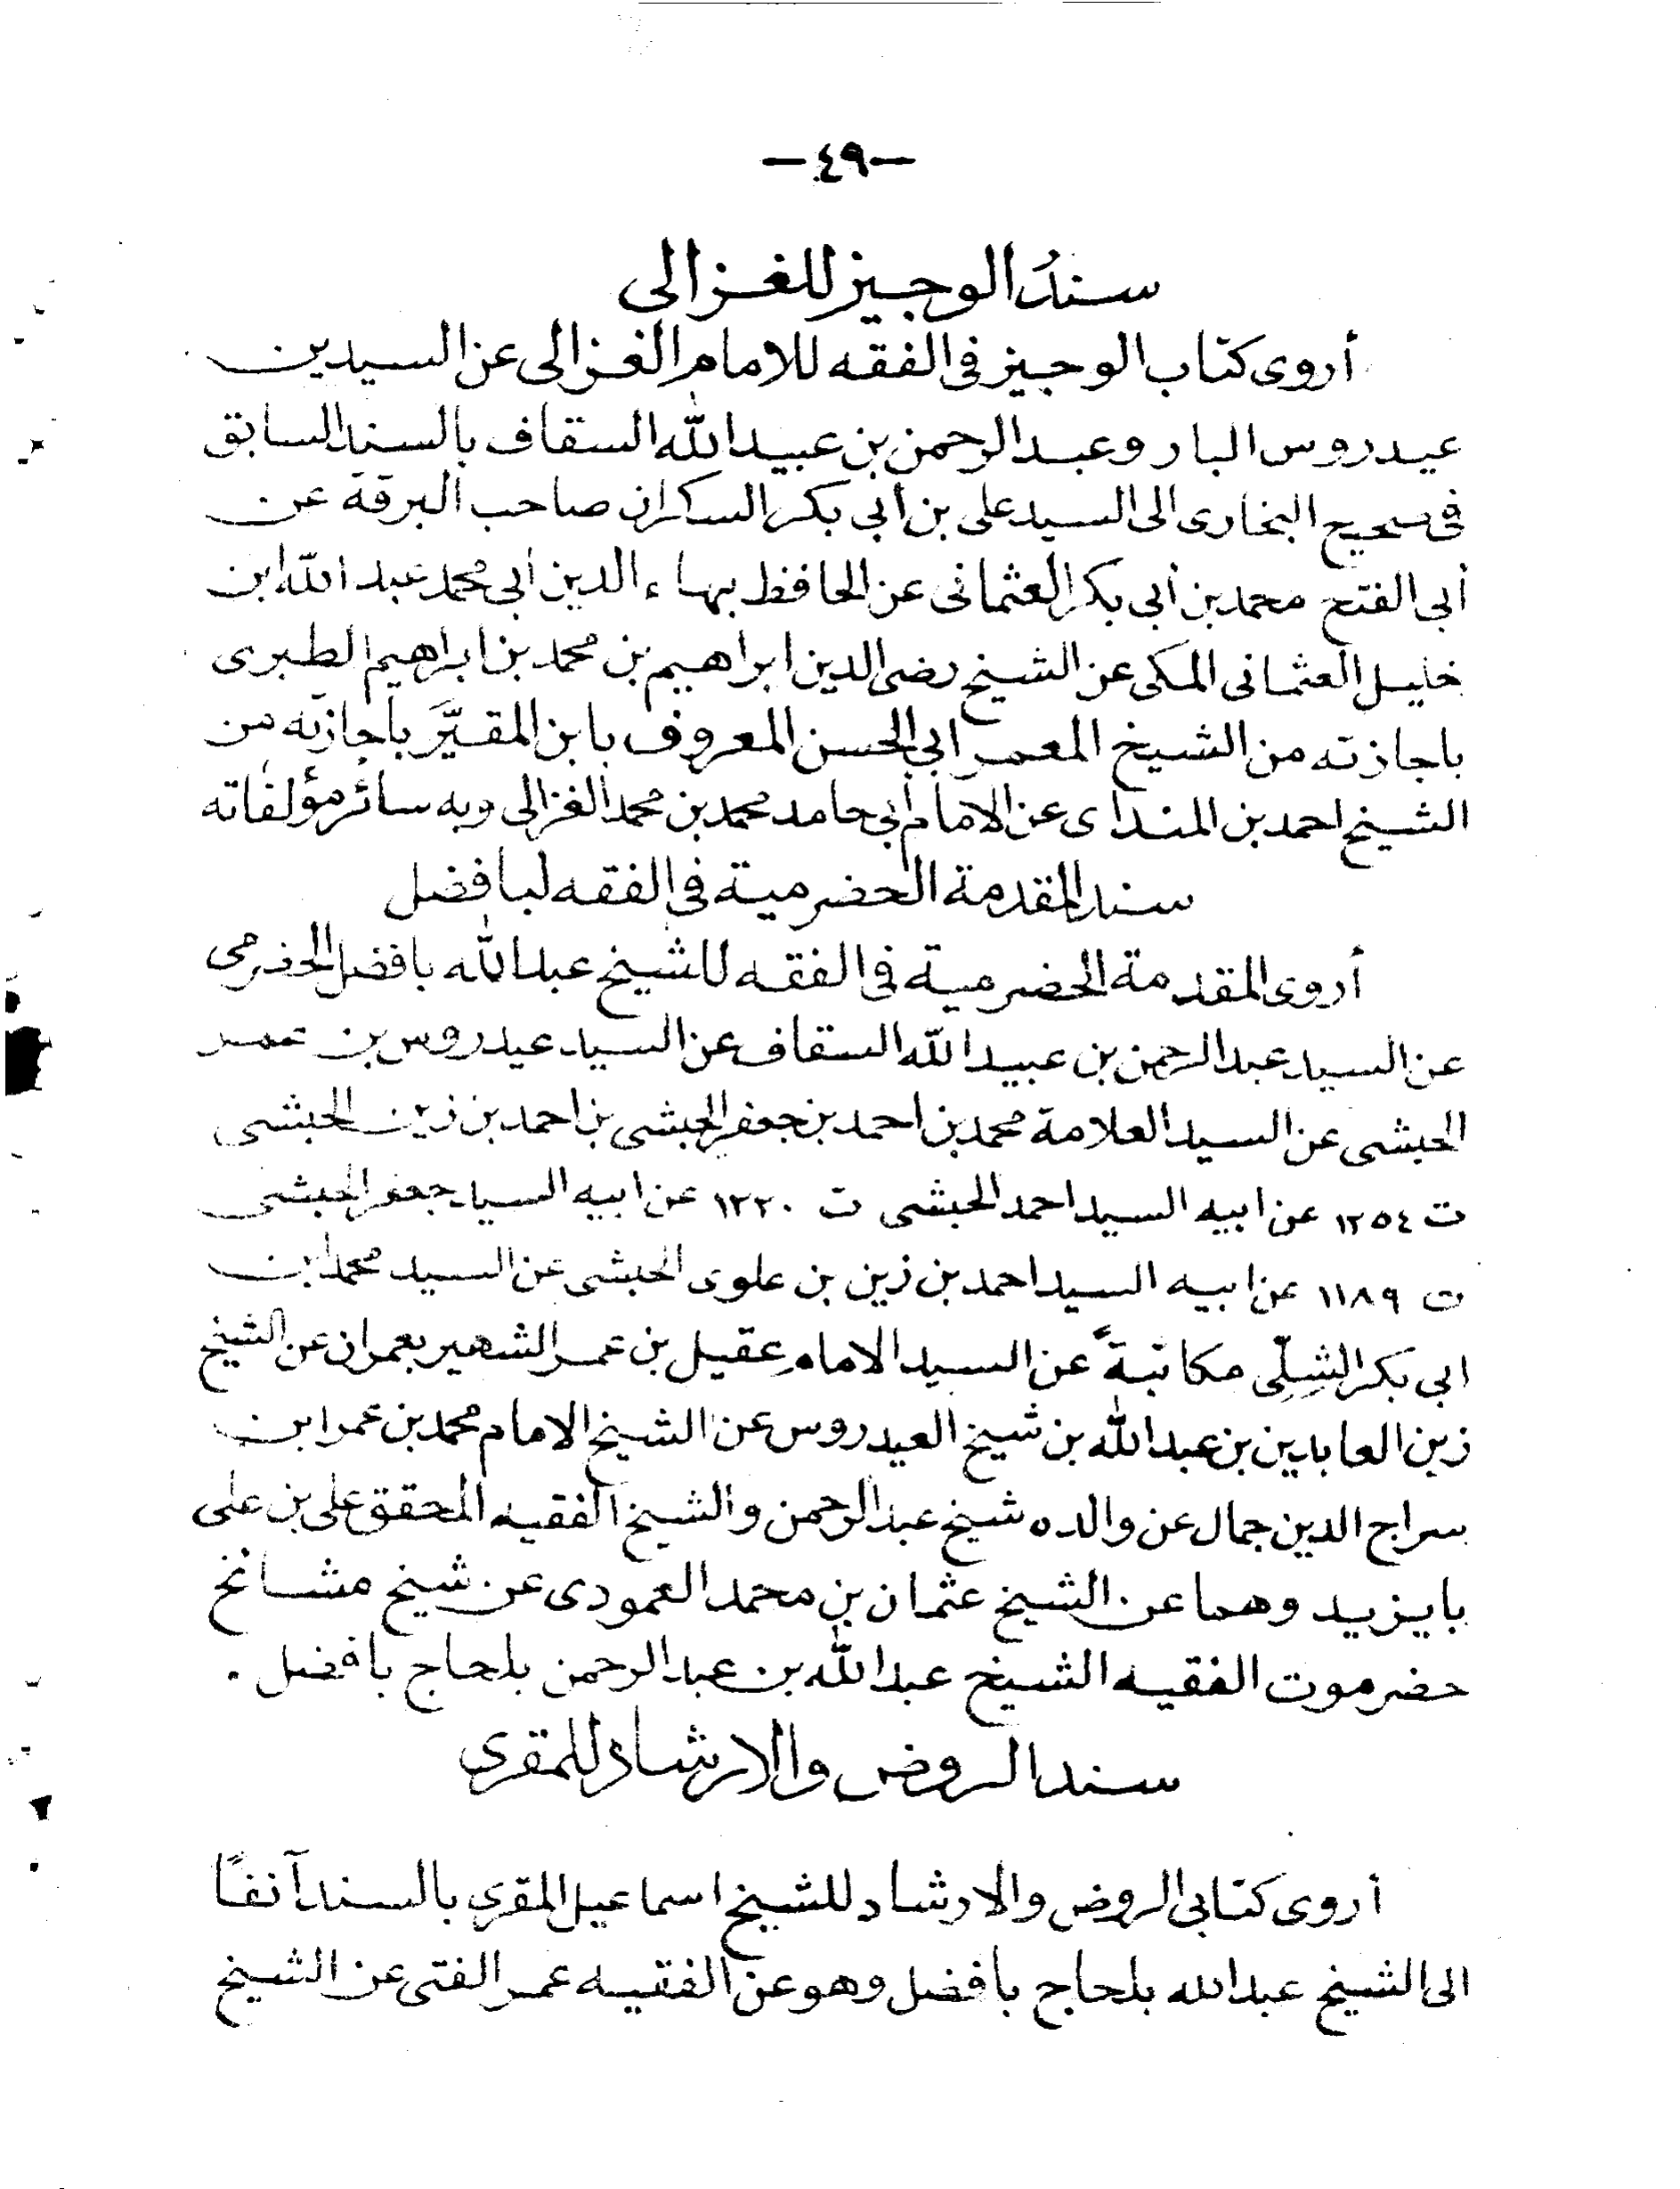 —٤٩—
سندُ الوجيز للغزالى
أروى كتاب الوجيز فى الفقه للامام الغزالى عن السيدين
عيدروس البار وعبد الرحمن بن عبيد الله السقاف بالسند السابق
فى صحيح البخارى الى السيد على بن أبي بكر السكران صاحب البرقة عن
أبى الفتح محمد بن أبى بكر العثمانى عن الحافظ بهاء الدين أبى محمد عبد الله ابن
خليل العثمانى المكى عن الشيخ رضى الدين ابراهيم بن محمد بن ابراهيم الطبرى
باجازته من الشيخ المعمر ابى الحسن المعروف بابن المقيَّر باجازته من
الشيخ احمد بن المنداى عن الامام أبى حامد محمد بن محمد الغزالى وبه سائر مؤلفاته
سند المقدمة الحضرمية فى الفقه لبافضل
أروى المقدمة الحضرمية فى الفقه للشيخ عبد الله بافضل الحضرمى
عن السيد عبد الرحمن بن عبيد الله السقاف عن السيد عيدروس بن عمر
الحبشى عن السيد العلامة محمد بن احمد بن جعفر الحبشى بن احمد بن زين الحبشى
ت ١٢٥٤ عن ابيه السيد احمد الحبشى ت ١٢٢٠ عن ابيه السيد جعفر الحبشى
ت ١١٨٩ عن ابيه السيد احمد بن زين بن علوى الحبشى عن السيد محمد ابن
ابى بكر الشِلِّى مكاتبةً عن السيد الامام عقيل بن عمر الشهير بعمران عن الشيخ
زين العابدين بن عبد الله بن شيخ العيدروس عن الشيخ الامام محمد بن عمر ابن
سراج الدين جمال عن والده شيخ عبد الرحمن والشيخ الفقيه المحقق على بن على
بايزيد وهما عن الشيخ عثمان بن محمد العمودى عن شيخ مشائخ
حضرموت الفقيه الشيخ عبد الله بن عبد الرحمن بلحاج بافضل .
سند الروض والارشاد للمقرى
أروى كتابى الروض والارشاد للشيخ اسماعيل المقرى بالسند آنفًا
الى الشيخ عبد الله بلحاج بافضل وهو عن الفقيه عمر الفتى عن الشيخ